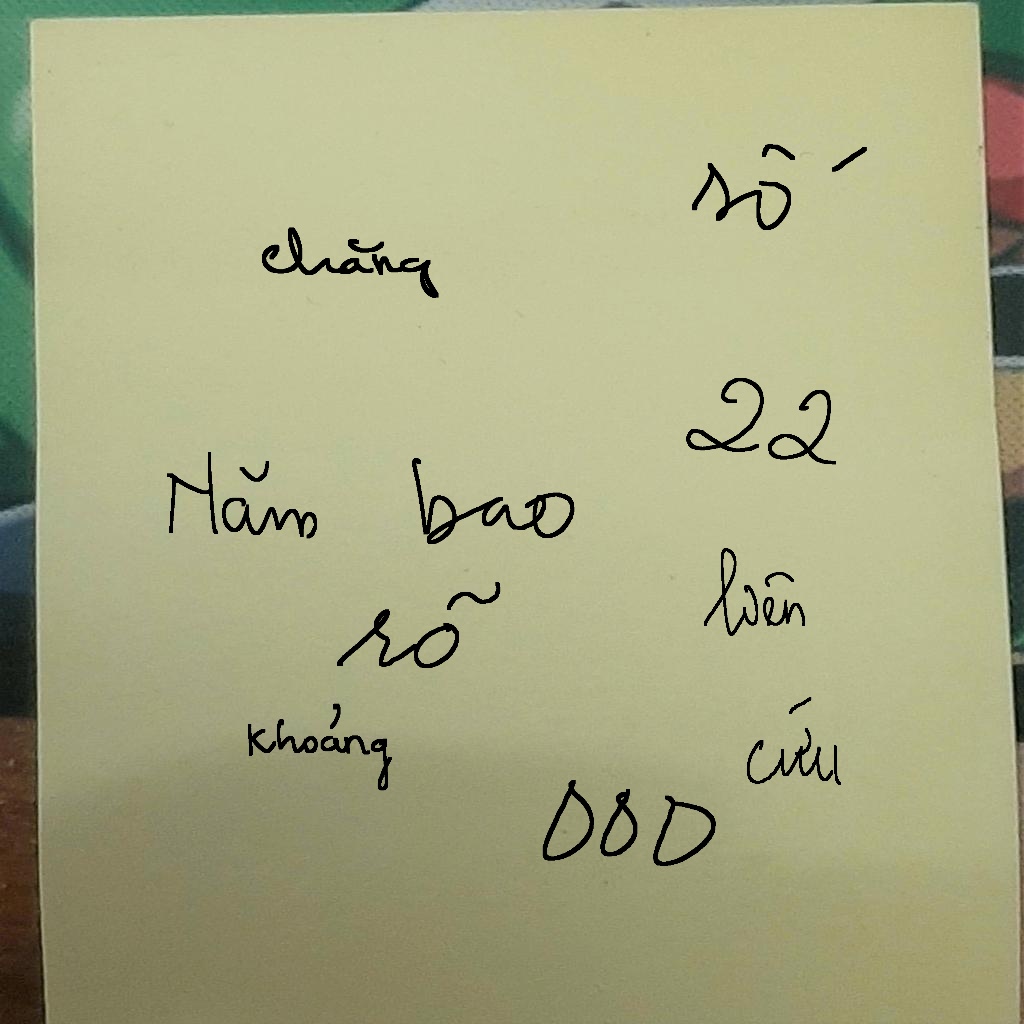 số
chăng
22
Năm bao
rõ
khoảng
cứu
000